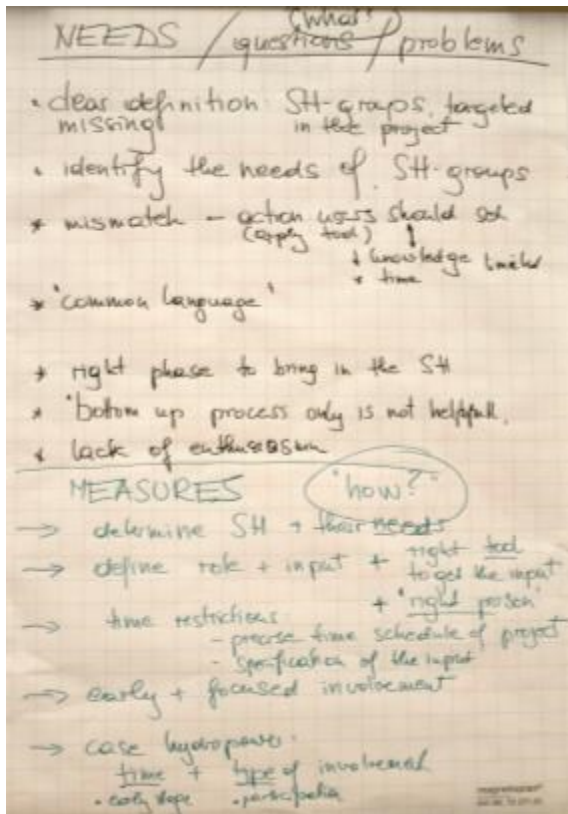 (what?)
NEEDS / questions / problems
• clear definition SH-groups, targeted
missing in the project
• identify the needs of SH-groups
* mismatch - action users should
(apply tool)
knowledge
* time
* "common language"
* right phase to bring in the SH
* "bottom up process only is not helpfull.
* lack of enthusiasm
MEASURES "how?"
→ determine SH + their needs
→ define role + input + right tool
to get the input
+ "right person"
→ time restrictions:
- precise time schedule of project
- specification of the input
→ early + focused involvement
→ case hydropower:
time + type of involvement
• early stage • participation